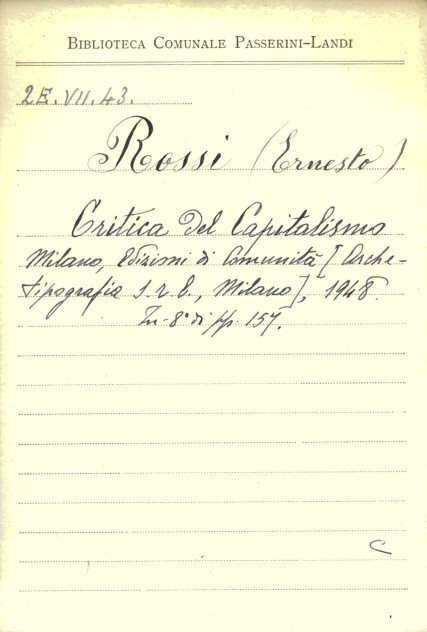 BIBLIOTECA COMUNALE PASSERINI-LANDI
2E.VII.43.
Rossi (Ernesto)
Critica del Capitalismo
Milano, Edizioni di Comunità [Arche-
tipografia S.r.l., Milano], 1948
In-8° di pp. 157.
C